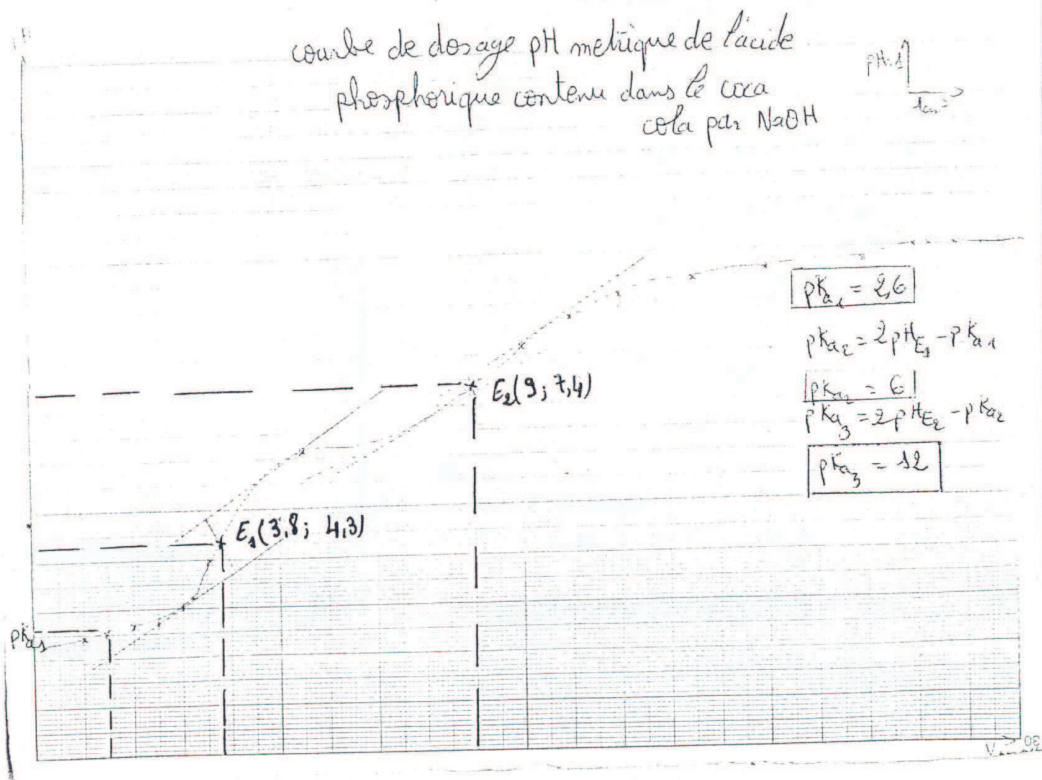 courbe de dosage pH metrique de l'acide
phosphorique contenu dans le coca
cola par NaOH
pH:1
pKa1 = 2,6
pKa2 = 2pHE1 - pKa1
pKa2 = 6
pKa3 = 2pHE2 - pKa2
pKa3 = 12
E2(9; 7,4)
E1(3,8; 4,3)
pKa1